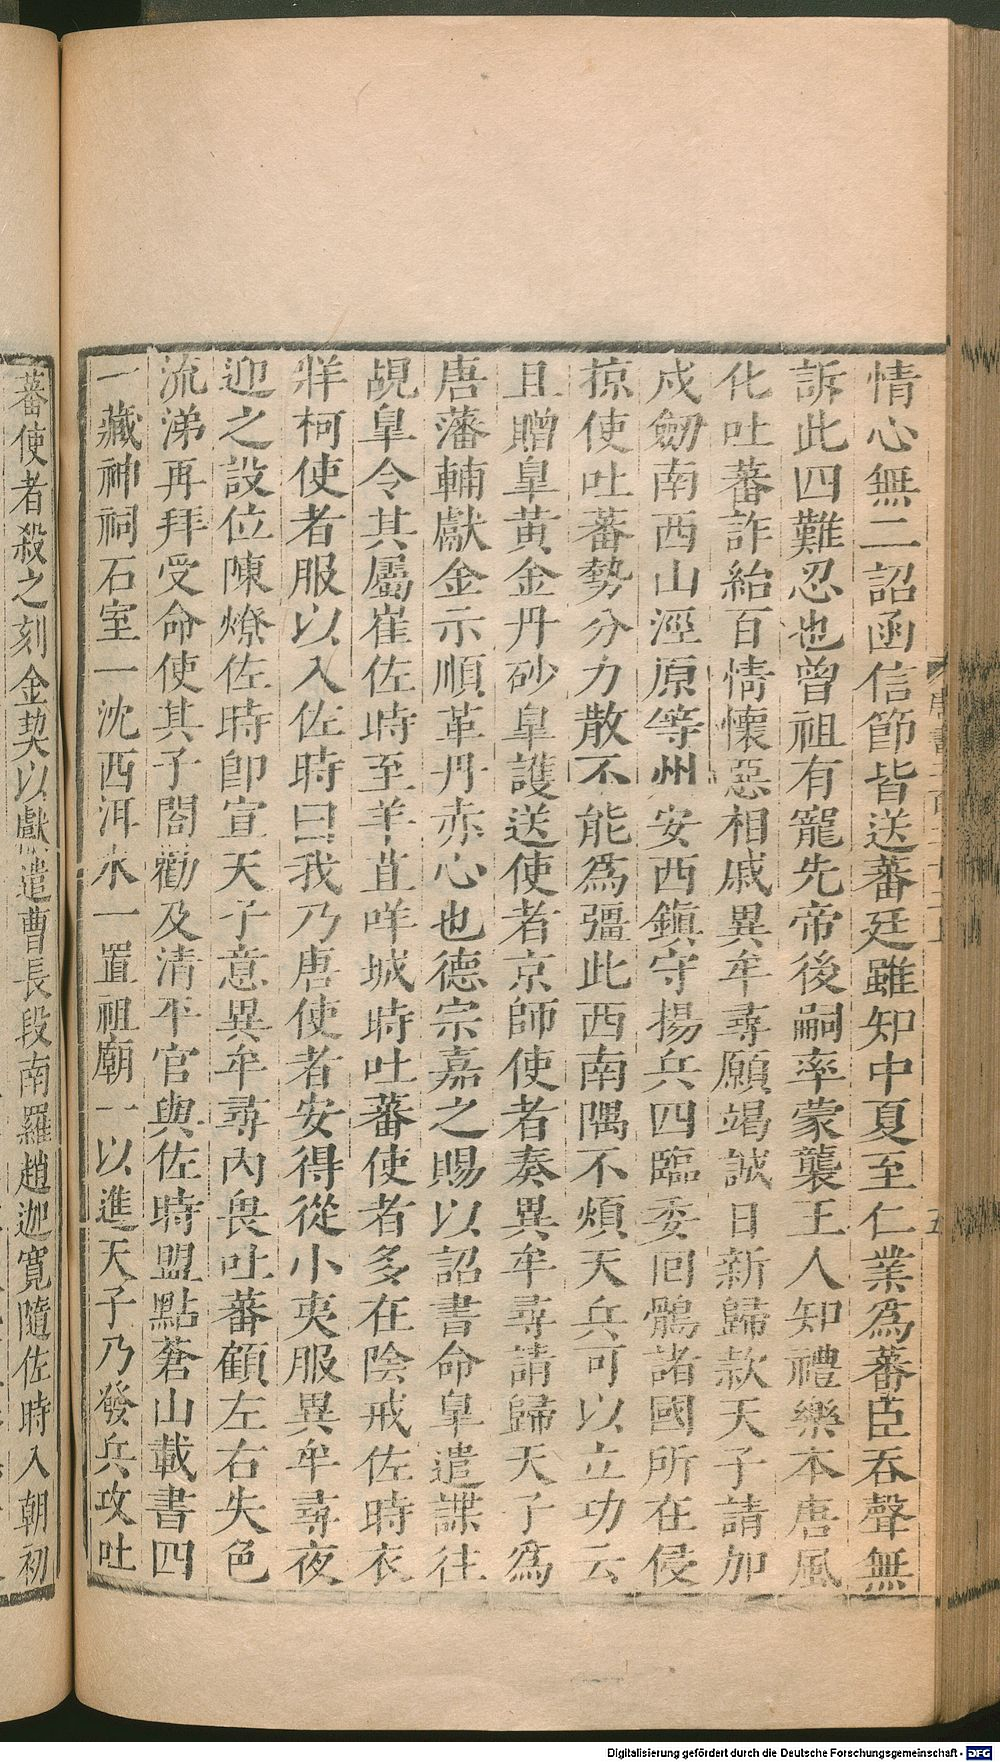 情心無二詔函信節皆送蕃廷雖知中夏至仁業為蕃臣吞聲無
訴此四難忍也曾祖有寵先帝後嗣率蒙襲王人知禮樂本唐風
化吐蕃詐紿百情懷惡相戚異牟尋願竭誠日新歸款天子請加
戍劒南西山涇原等州安西鎮守揚兵四臨委回鶻諸國所在侵
掠使吐蕃勢分力散不能為彊此西南隅不煩天兵可以立功云
且贈皐黃金丹砂皐護送使者京師使者奏異牟尋請歸天子為
唐藩輔獻金示順革丹赤心也德宗嘉之賜以詔書命皐遣諜往
覘皐令其屬崔佐時至羊苴咩城時吐蕃使者多在陰戒佐時衣
牂柯使者服以入佐時曰我乃唐使者安得從小夷服異牟尋夜
迎之設位陳燎佐時卽宣天子意異牟尋內畏吐蕃顧左右失色
流涕再拜受命使其子閤勸及清平官與佐時盟點蒼山載書四
一藏神祠石室一沈西洱水一置祖廟一以進天子乃發兵攻吐
蕃使者殺之刻金契以獻遣曹長段南羅趙迦寬隨佐時入朝初
Digitalisierung gefördert durch die Deutsche Forschungsgemeinschaft - DFG